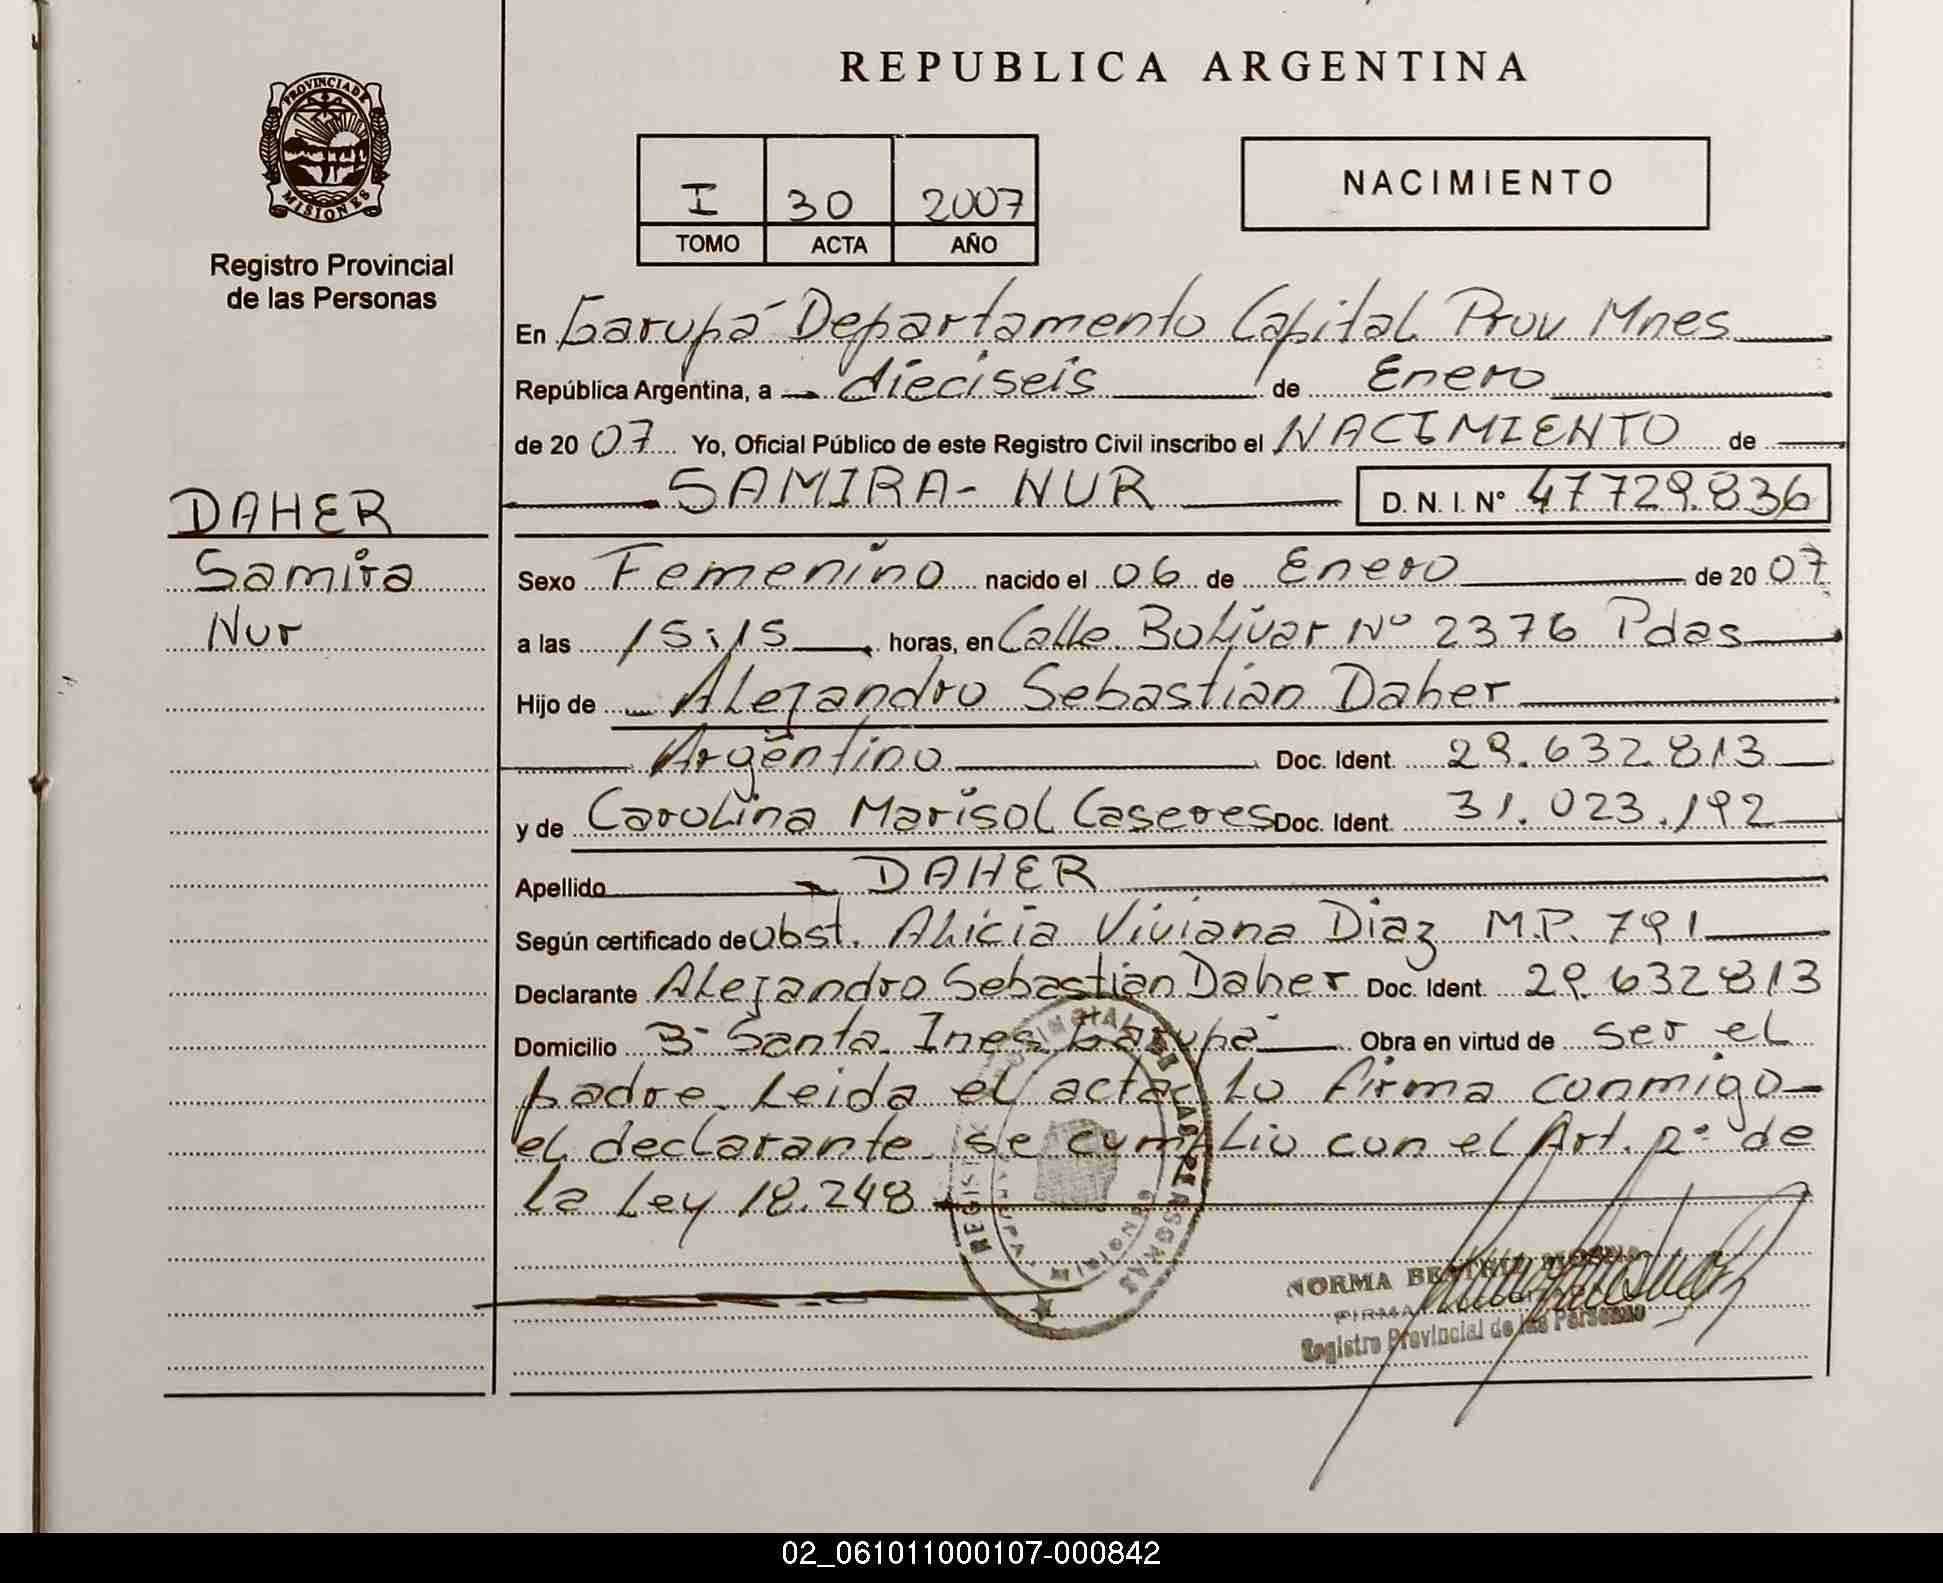 REPUBLICA ARGENTINA
PROVINCIA DE
MISIONES
Registro Provincial
de las Personas
I 30 2007
TOMO ACTA AÑO
NACIMIENTO
En Garupá Departamento Capital Prov Mnes
República Argentina, a dieciseis de Enero
de 2007 Yo, Oficial Público de este Registro Civil inscribo el NACIMIENTO de
SAMIRA- NUR D. N. I. Nº 47729.836
DAHER
Samira
Nur
Sexo Femenino nacido el 06 de Enero de 2007
a las 15:15 horas, en Calle Bolivar Nº 2376 Pdas
Hijo de Alejandro Sebastian Daher
Argentino Doc. Ident. 29.632.813
y de Carolina Marisol Caseres Doc. Ident. 31.023.192
Apellido DAHER
Según certificado de Obst. Alicia Viviana Diaz M.P. 791
Declarante Alejandro Sebastian Daher Doc. Ident. 29.632813
Domicilio Bº Santa Ines Garupá Obra en virtud de ser el
padre. Leida el acta Lo firma conmigo
el declarante se cumplio con el Art. 2º de
la Ley 18.248
NORMA BEATRIZ
FIRMA
Registro Provincial de las Personas
02_061011000107-000842